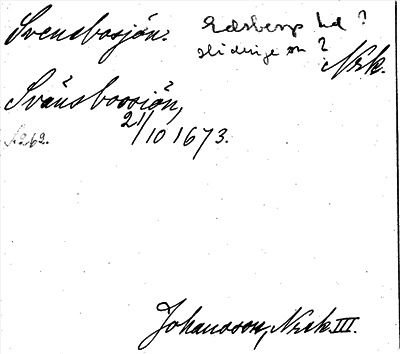 Svensbosjön. Edsbergs hd ?
Hidinge sn ? Nrk.
Svänsboosiön,
21/10 1673.
S. 262.
Johansson, Nrk III.